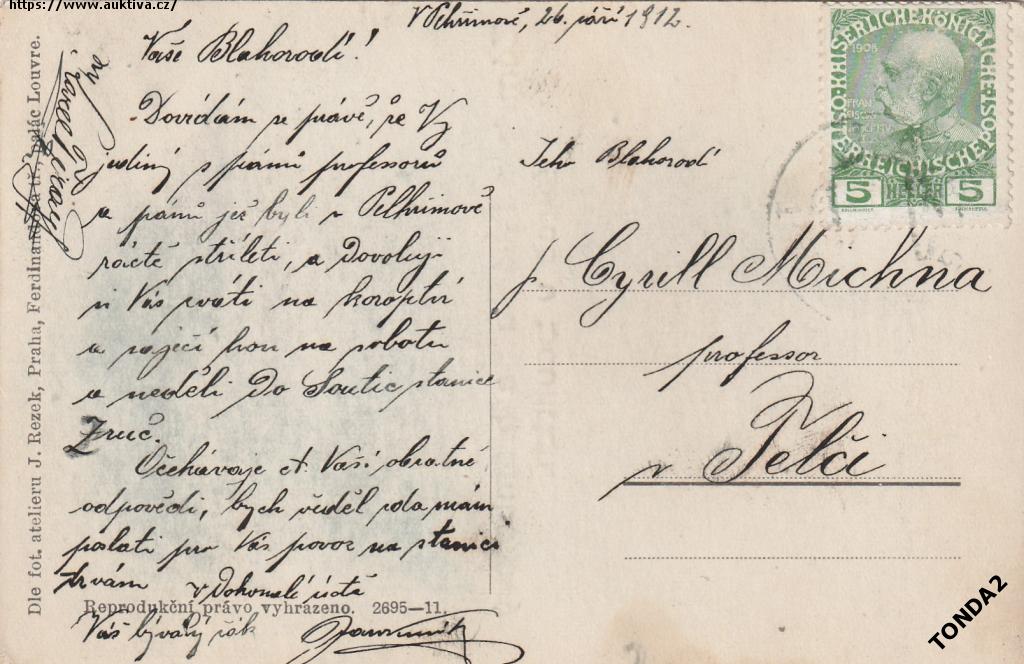 https://www.auktiva.cz/
26. září 1912.
Vaše Blahorodí!
Dovídám se právě, že Vy
jediný s pánů professorů
a pánů jež byli v Pelhřimově
ráčíte stříleti, a dovoluji
si Vás zváti na koroptví
a zaječí hon na sobotu
a neděli do Soutic stanice
Zruč.
Očekávaje ct. Vaší obratné
odpovědi, bych věděl zda mám
poslati pro Vás povoz na stanici
trvám
v dokonalé úctě
Váš bývalý žák
Jeho Blahorodí
p. Cyrill Michna
professor
v Telči
KAISERLICHE KÖNIGLICHE
ÖSTERREICHISCHE
1908
5 HELLER 5
Dle fot. atelieru J. Rezek, Praha, Ferdinandova tř., palác Louvre.
Reprodukční právo vyhrazeno. 2695-11.
TONDA2